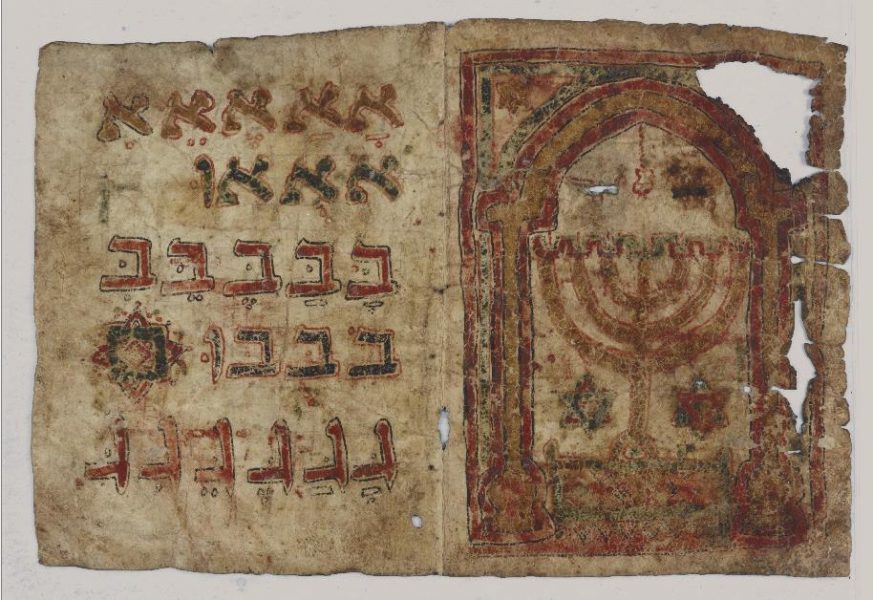 אָ אַ אֶ אֵ אִ
א א או
בָּ בַּ בֶּ בֵּ בִּ
ב ב בו
גָ גַ גֶ גֵ גִ ג